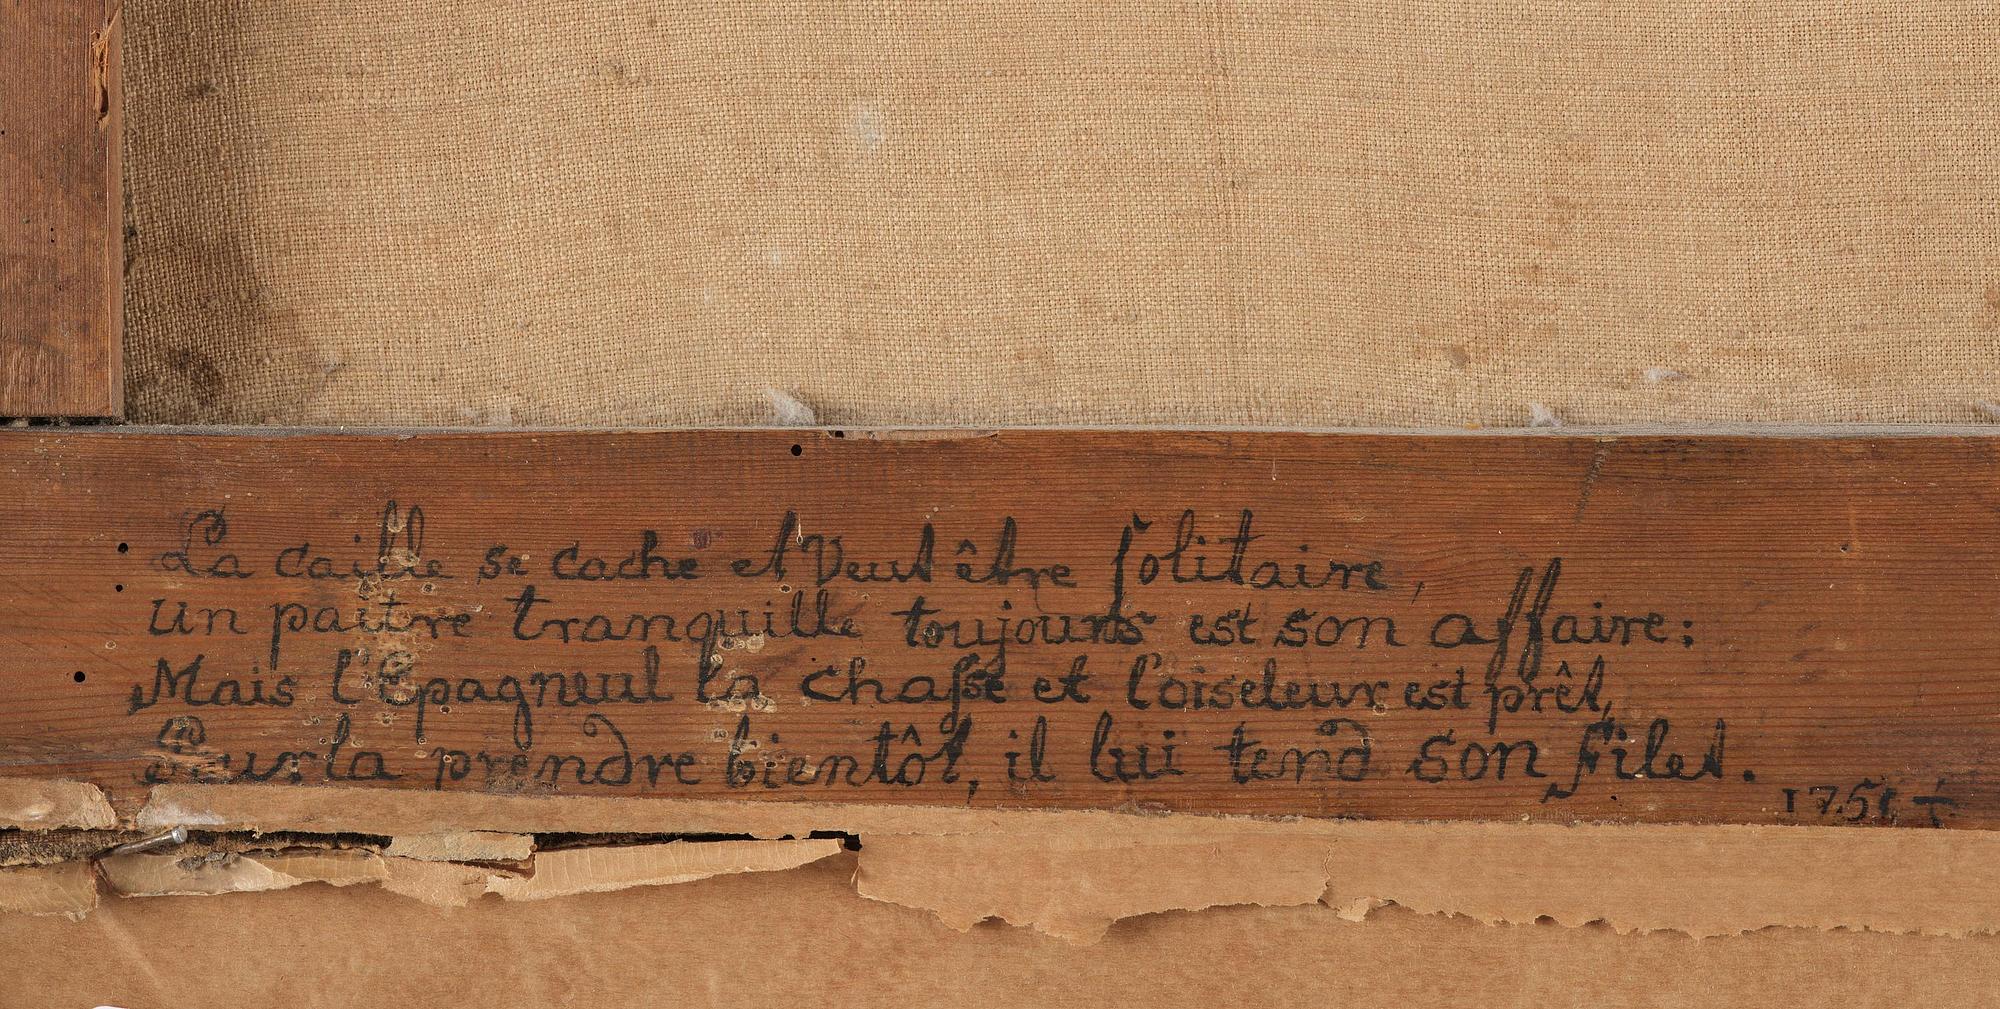 La caille se cache et Veut être ſolitaire,
un paitre tranquille toujours est son affaire;
Mais l'Epagneul la chaſse et l'oiseleur est prêt,
Pour la prendre bientôt, il lui tend son filet.
1751